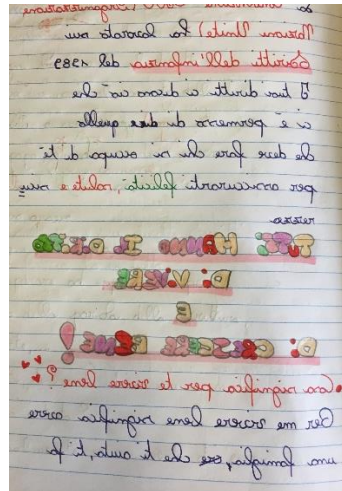 Nazioni Unite) ha lavorato
Diritti dell'infanzia del 1989
I tuoi diritti ci dicono ciò che
ci è permesso di quello
che deve fare chi si occupa di te
per assicurarti felicità, salute e sicu
rezza
TUTTI HANNO IL DIRITTO
DI VIVERE
E
DI CRESCERE BENE!
Cosa significa per te vivere bene?
Per me vivere bene significa avere
una famiglia, che ti aiuta, ti fa